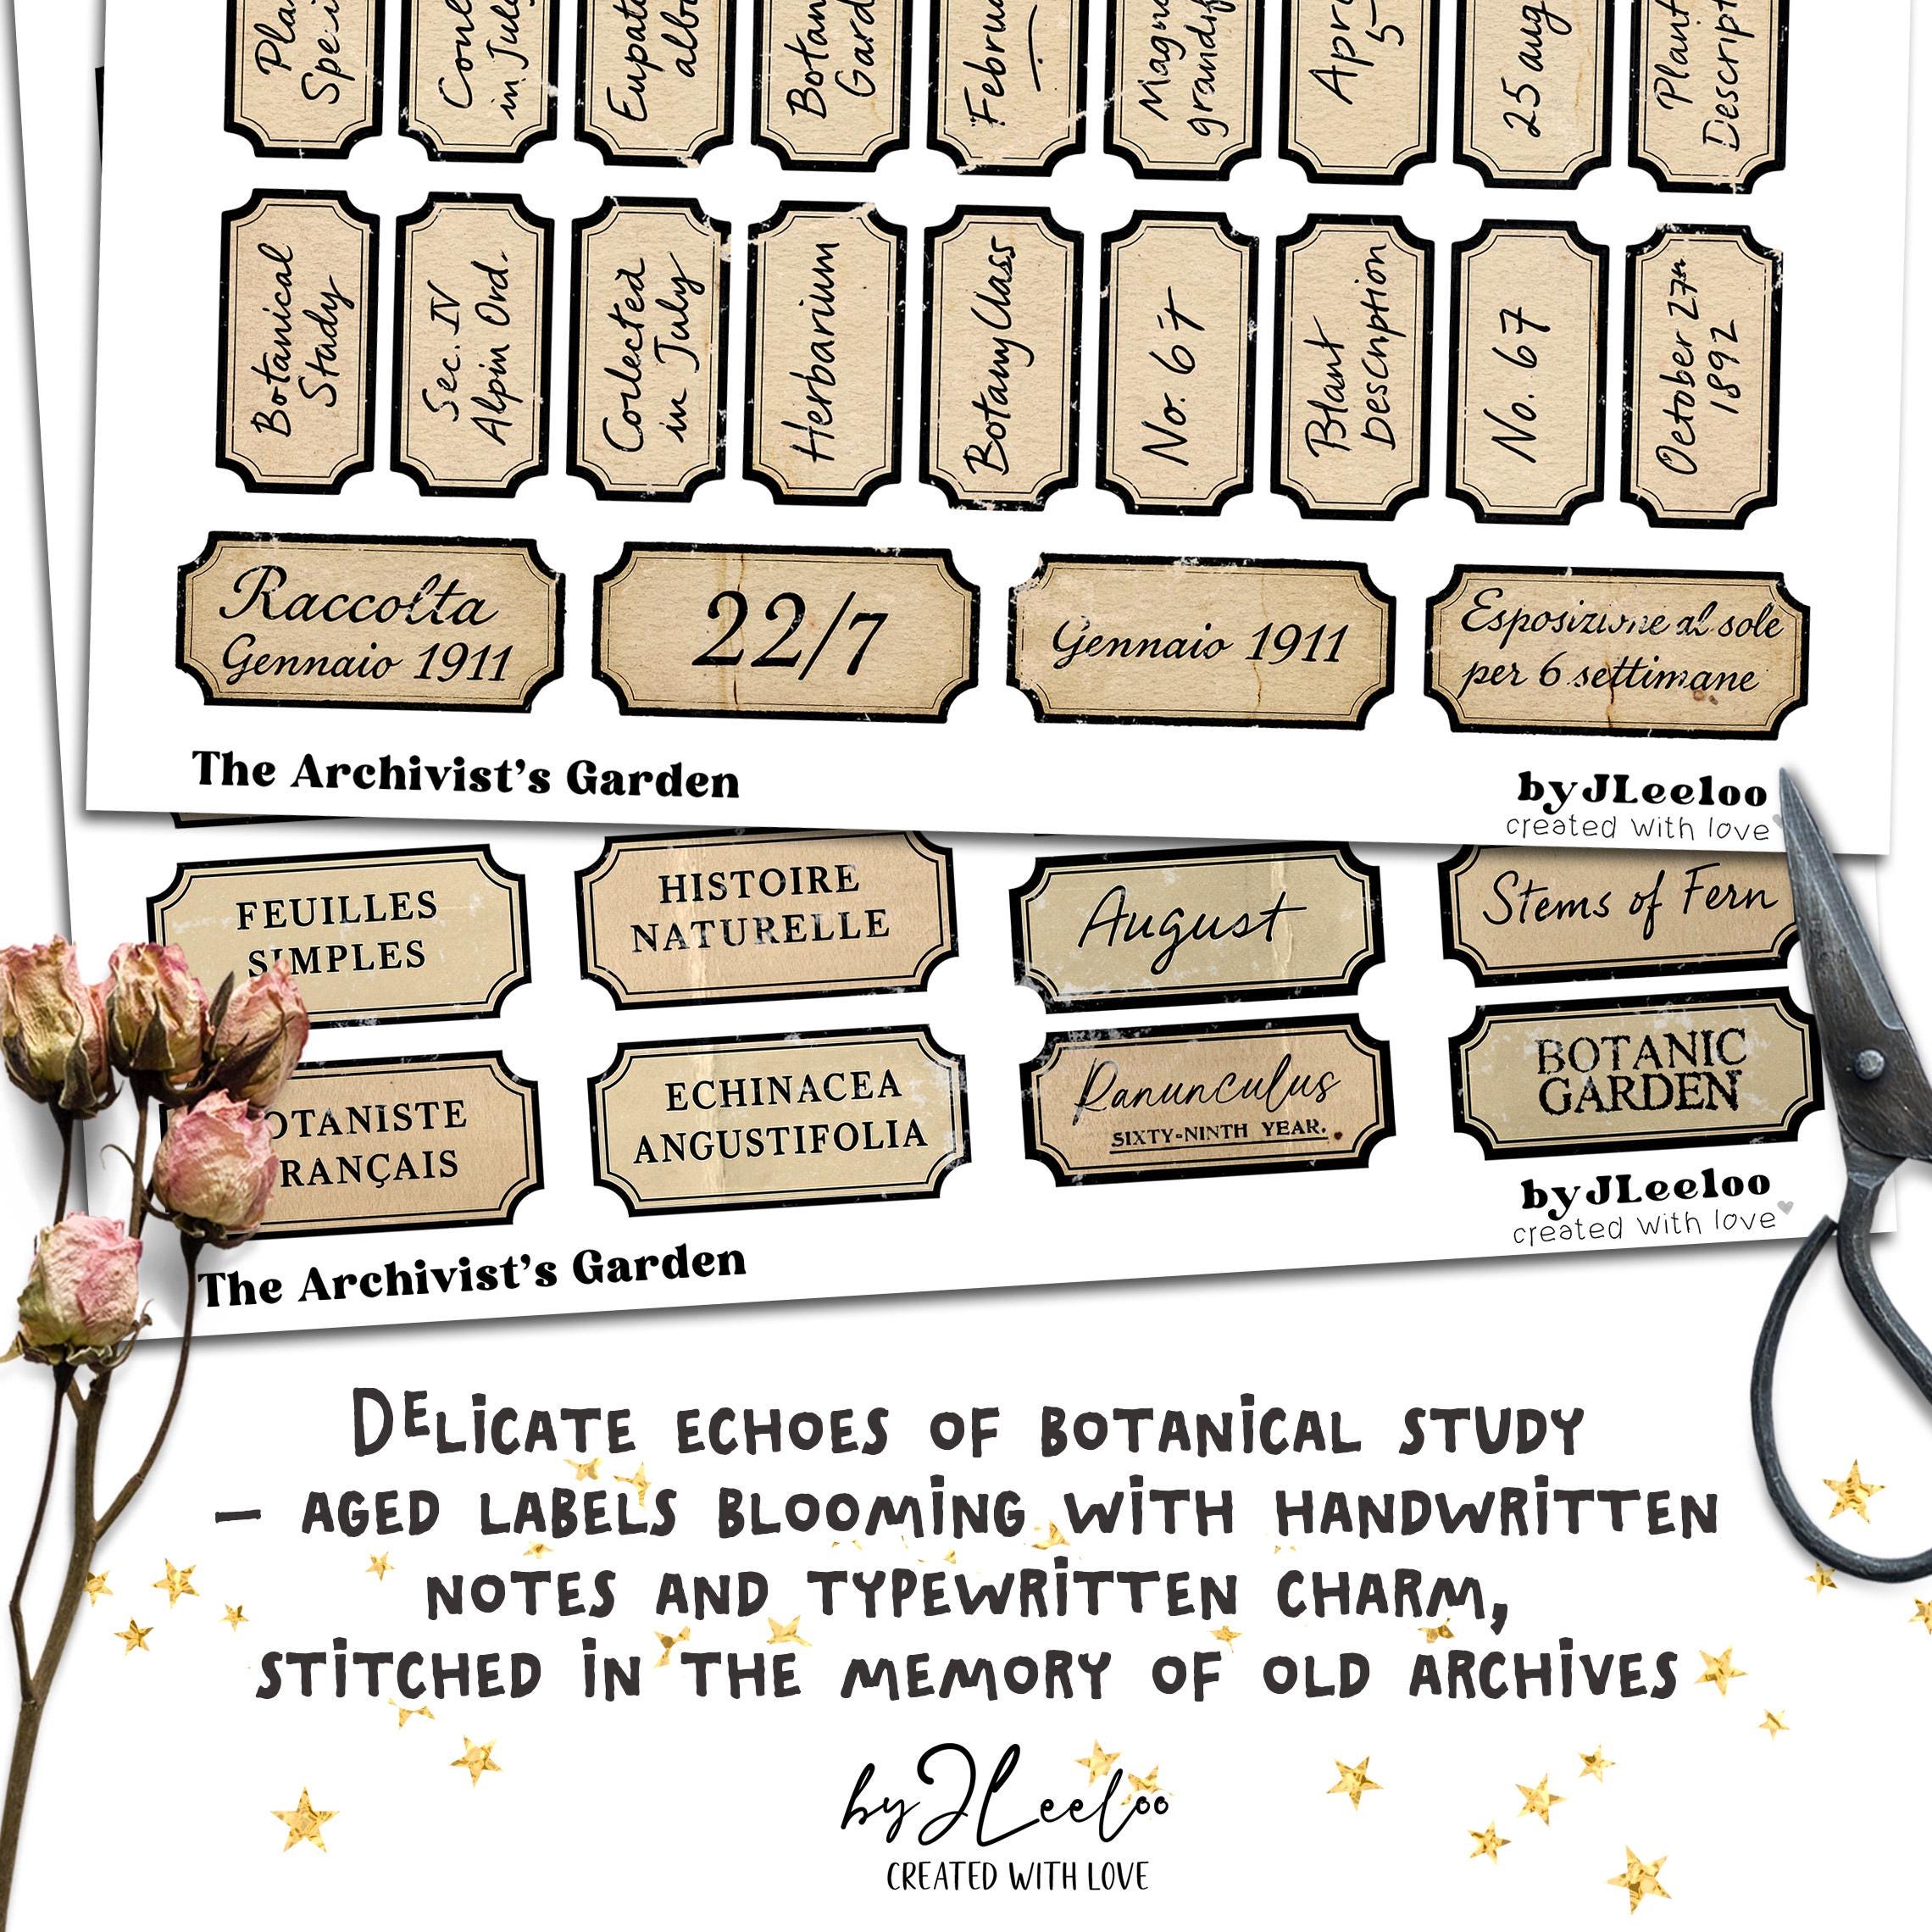 Botan
Gard
25 aug
Plant
Descript
Botanical
Stady
Sec. IV
Alpin Ord.
Collected
in July
Herbarium
Botany Class
No. 67
Blant
Description
No. 67
October 27th
1892
Raccolta
Gennaio 1911
22/7
Gennaio 1911
Esposizione al sole
per 6 settimane
The Archivist's Garden
byJLeeloo
created with love
FEUILLES
SIMPLES
HISTOIRE
NATURELLE
August
Stems of Fern
OTANISTE
RANÇAIS
ECHINACEA
ANGUSTIFOLIA
Ranunculus
SIXTY-NINTH YEAR.
BOTANIC
GARDEN
byJLeeloo
created with love
The Archivist's Garden
DELICATE ECHOES OF BOTANICAL STUDY
– AGED LABELS BLOOMING WITH HANDWRITTEN
NOTES AND TYPEWRITTEN CHARM,
STITCHED IN THE MEMORY OF OLD ARCHIVES
byJLeeloo
CREATED WITH LOVE